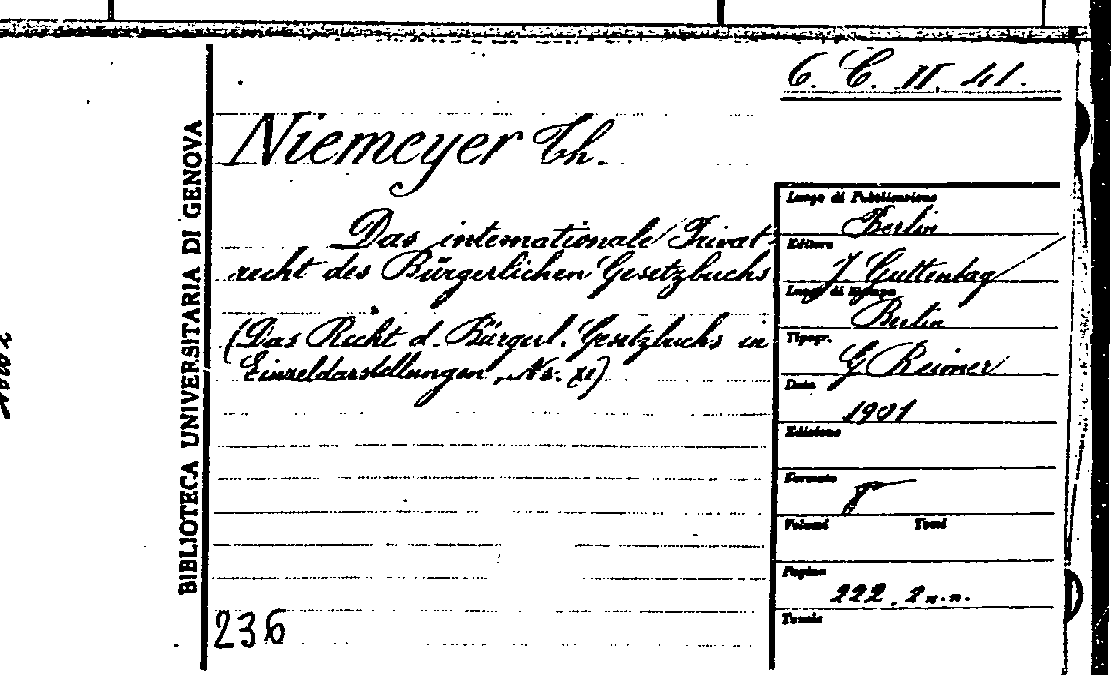 6. C. II. 41.
BIBLIOTECA UNIVERSITARIA DI GENOVA
Niemeyer Th.
Das internationale Privat-
recht des Bürgerlichen Gesetzbuchs
(Das Recht d. Bürgerl. Gesetzbuchs in
Einzeldarstellungen, Nr. XI)
236
Luogo di Pubblicazione
Berlin
Editore
J Guttentag
Luogo di Stampa
Berlin
Tipogr.
G Reimer
Data
1901
Edizione
Formato
8°
Volumi Tomi
Pagine
222, 2 n.n.
Tavole